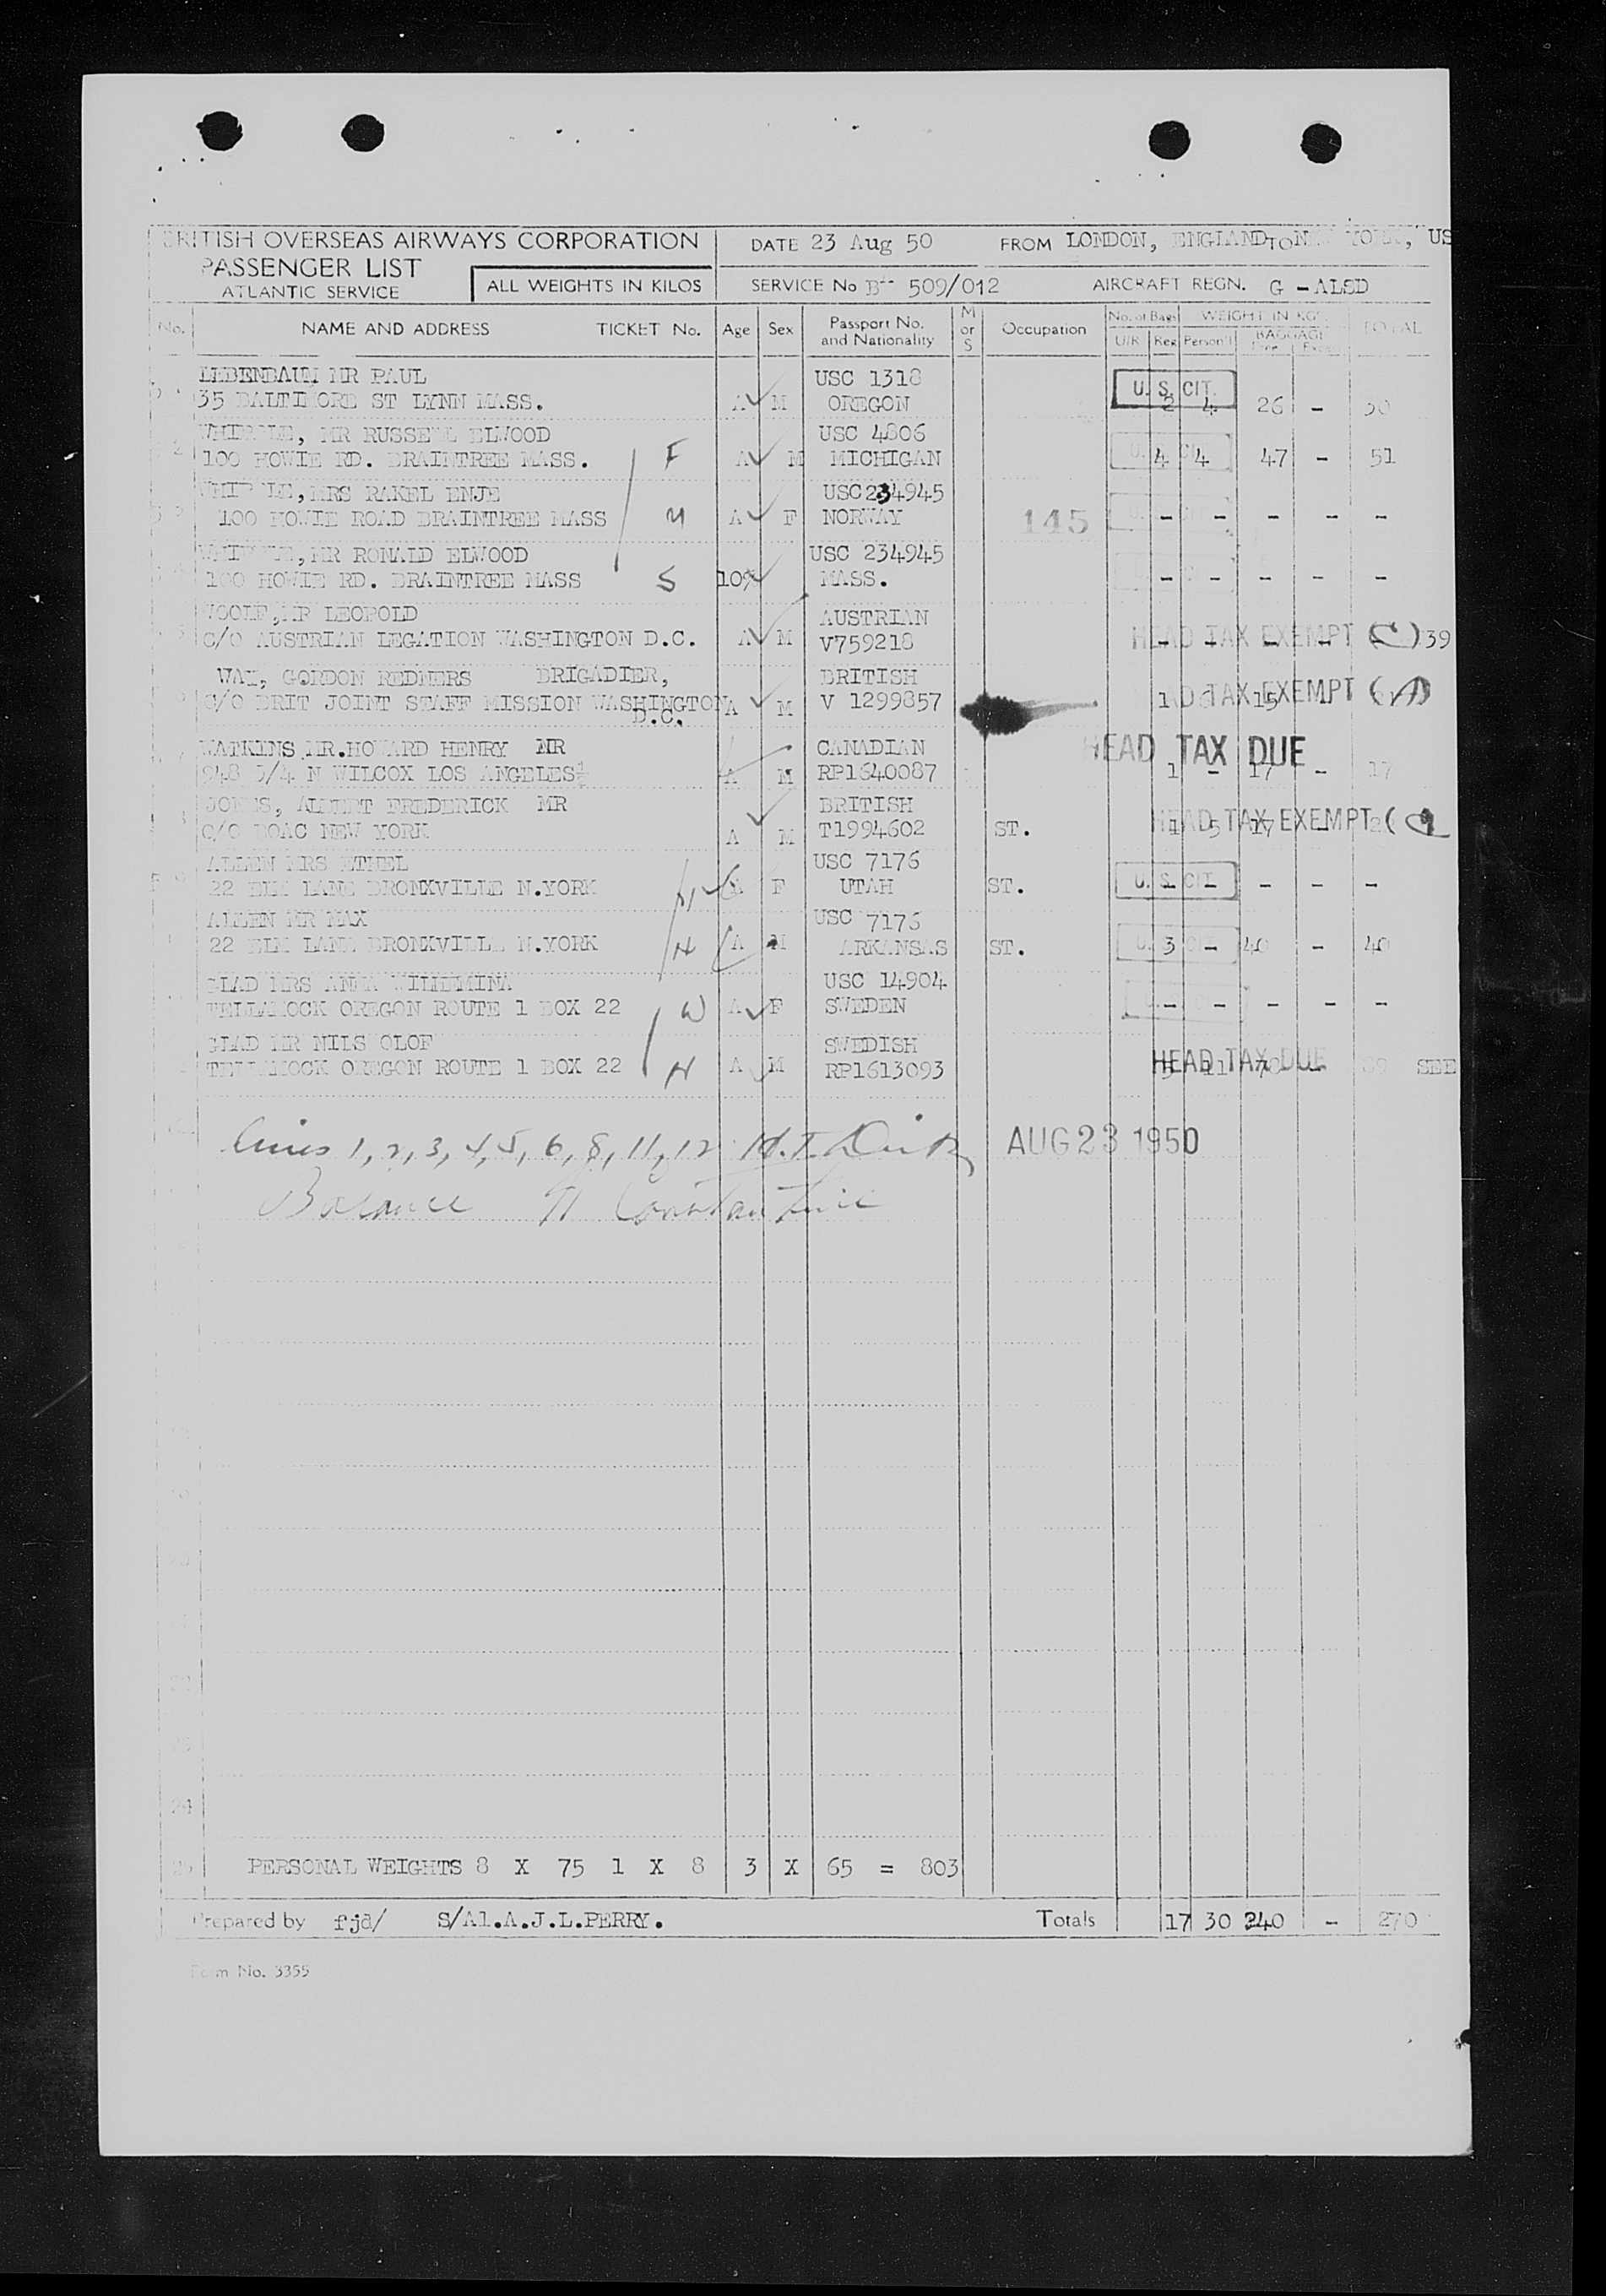 BRITISH OVERSEAS AIRWAYS CORPORATION
PASSENGER LIST
ATLANTIC SERVICE
ALL WEIGHTS IN KILOS
DATE 23 Aug 50 FROM LONDON, ENGLAND TO
SERVICE No 509/012 AIRCRAFT REGN. G - ALSD
No. NAME AND ADDRESS TICKET No. Age Sex Passport No. and Nationality M or S Occupation No. of Bags U/R Reg WEIGHT IN KGS. Person'l BAGGAGE Free Exs. TOTAL
MR PAUL USC 1318
35 BALTIMORE ST LYNN MASS. A M OREGON U. S. CIT. 2 4 26 - 30
MR RUSSELL ELWOOD USC 4806
100 HOWIE RD. BRAINTREE MASS. F A M MICHIGAN 4 4 47 - 51
MRS RAKEL ENJE USC 234945
100 HOWIE ROAD BRAINTREE MASS M A F NORWAY 145 - - - - -
MR RONALD ELWOOD USC 234945
100 HOWIE RD. BRAINTREE MASS S 10 MASS. - - - - -
WOOLF, MR LEOPOLD AUSTRIAN
C/O AUSTRIAN LEGATION WASHINGTON D.C. A M V759218 HEAD TAX EXEMPT 39
WAY, GORDON REDNERS BRIGADIER, BRITISH
C/O BRIT JOINT STAFF MISSION WASHINGTON D.C. A M V 1299857 1 15 TAX EXEMPT (A)
WATKINS MR. HOWARD HENRY MR CANADIAN HEAD TAX DUE
948 3/4 N WILCOX LOS ANGELES A M RP1640087 1 - 17 - 17
JONES, ALBERT FREDERICK MR BRITISH
C/O BOAC NEW YORK A M T1994602 ST. HEAD TAX EXEMPT 1 5 17
ALLEN MRS ETHEL USC 7176
22 ELM LANE BRONXVILLE N.YORK A F UTAH ST. U. S. CIT. - - -
ALLEN MR MAX USC 7176
22 ELM LANE BRONXVILLE N.YORK H A M ARKANSAS ST. 3 - 40 - 40
GLAD MRS ANNA WILHEMINA USC 14904
TELLAMOCK OREGON ROUTE 1 BOX 22 W A F SWEDEN - - - - -
GLAD MR NILS OLOF SWEDISH
TELLAMOCK OREGON ROUTE 1 BOX 22 H A M RP1613093 HEAD TAX DUE 11 SEE
Lines 1, 2, 3, 4, 5, 6, 8, 11, 12 AUG 23 1950
Balance
24
25 PERSONAL WEIGHTS 8 X 75 1 X 8 3 X 65 = 803
Prepared by fjd/ S/Al.A.J.L.PERRY. Totals 17 30 240 - 270
Form No. 3355